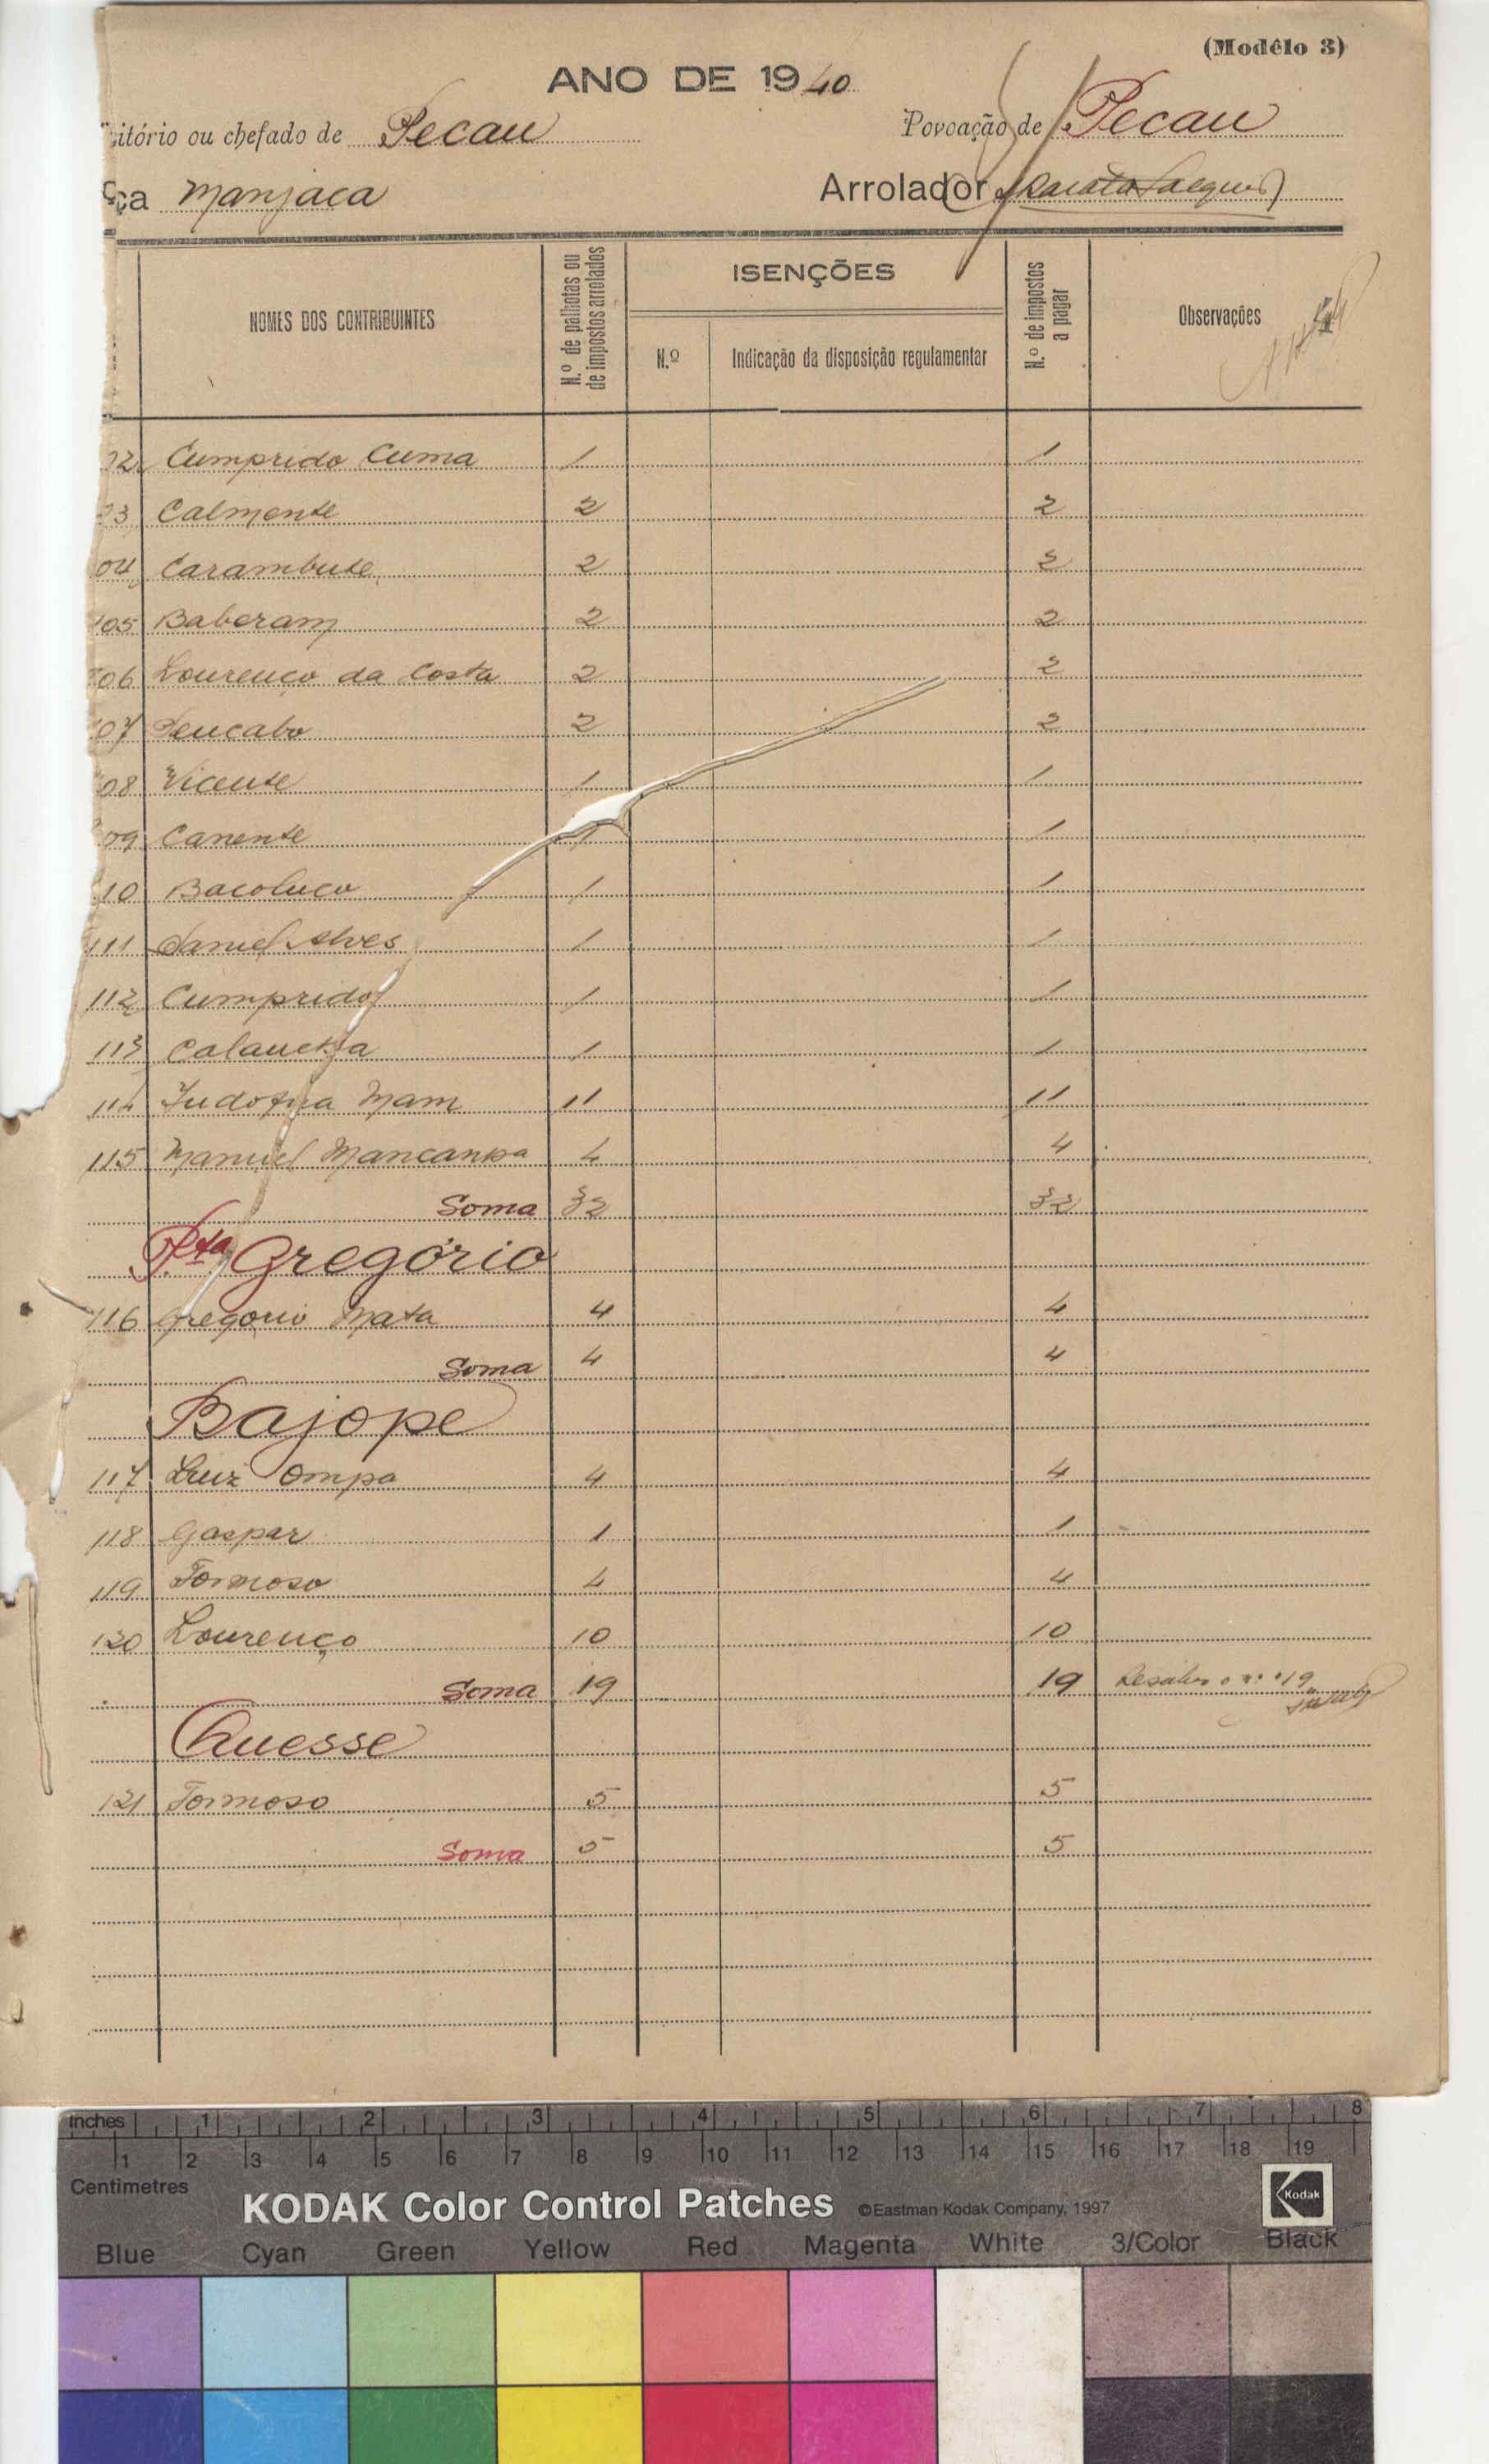 (Modêlo 3)
ANO DE 1940
itório ou chefado de Pecau Povoação de Pecau
ça Manjaca Arrolador
NOMES DOS CONTRIBUINTES N.º de palhotas ou de impostos arrolados ISENÇÕES N.º Indicação da disposição regulamentar N.º de impostos a pagar Observações
02 Cumprido Cuma 1 1
03 Calmente 2 2
04 Carambute 2 2
105 Baberam 2 2
06 Lourenço da Costa 2 2
07 2 2
08 Vicente 1 1
09 Canente 1 1
10 Bacoluco 1 1
111 Daniel Alves 1 1
112 Cumprido 1 1
113 1 1
114 Mam 11 11
115 Manuel Mancanha 4 4
Soma 32 32
P.ta Gregório
116 Gregorio Mata 4 4
Soma 4 4
Bajope
117 Luiz Ompa 4 4
118 Gaspar 1 1
119 Formoso 4 4
120 Lourenço 10 10
Soma 19 19
Quesse
121 Formoso 5 5
Soma 5 5
inches 1 2 3 4 5 6 7 8
1 2 3 4 5 6 7 8 9 10 11 12 13 14 15 16 17 18 19
Centimetres
KODAK Color Control Patches ©Eastman Kodak Company, 1997 Kodak
Blue Cyan Green Yellow Red Magenta White 3/Color Black